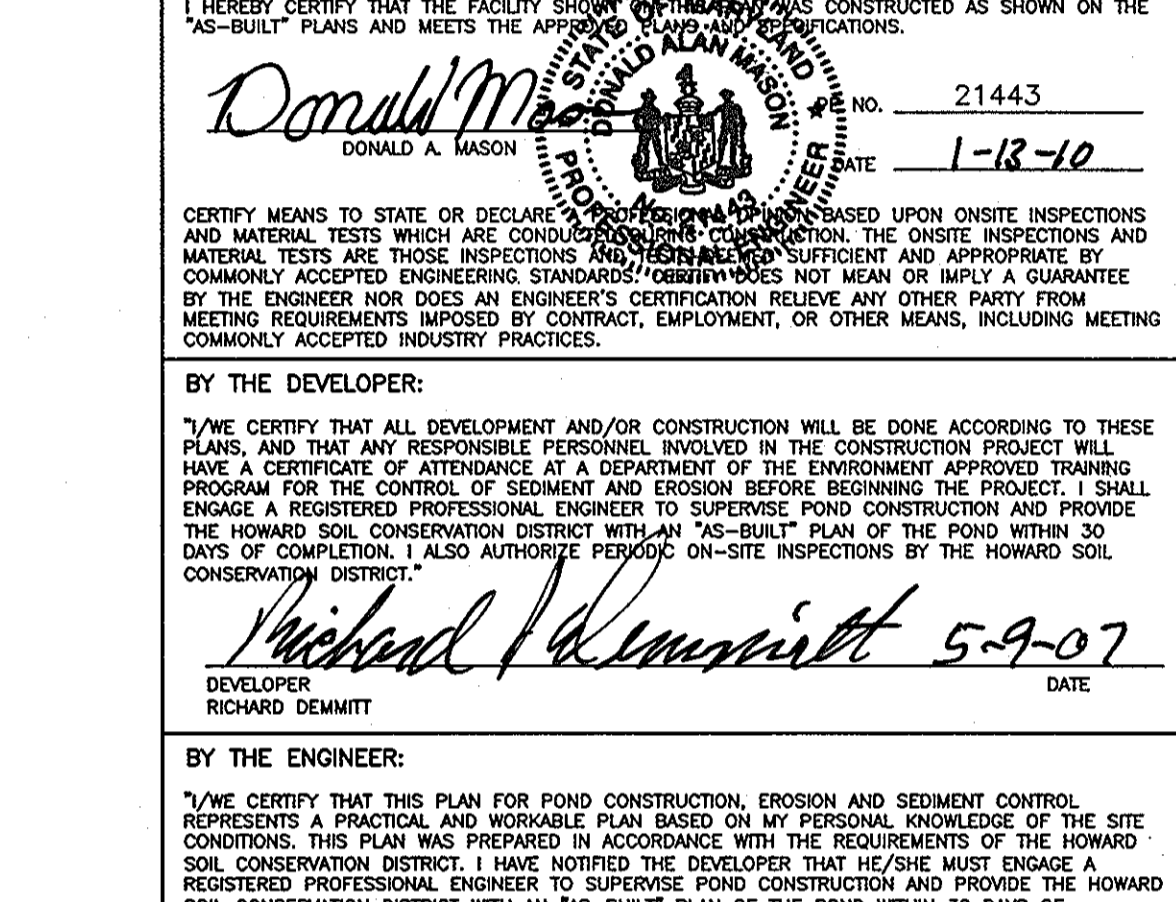 I HEREBY CERTIFY THAT THE FACILITY SHOWN ON THIS PLAN WAS CONSTRUCTED AS SHOWN ON THE
"AS-BUILT" PLANS AND MEETS THE APPROVED PLANS AND SPECIFICATIONS.
STATE OF MARYLAND
DONALD ALAN MASON
PROFESSIONAL ENGINEER
No. 21443
Donald Mason
DONALD A. MASON
P.E. NO. 21443
DATE 1-13-10
CERTIFY MEANS TO STATE OR DECLARE A PROFESSIONAL OPINION BASED UPON ONSITE INSPECTIONS
AND MATERIAL TESTS WHICH ARE CONDUCTED DURING CONSTRUCTION. THE ONSITE INSPECTIONS AND
MATERIAL TESTS ARE THOSE INSPECTIONS AND TESTS DEEMED SUFFICIENT AND APPROPRIATE BY
COMMONLY ACCEPTED ENGINEERING STANDARDS. CERTIFY DOES NOT MEAN OR IMPLY A GUARANTEE
BY THE ENGINEER NOR DOES AN ENGINEER'S CERTIFICATION RELIEVE ANY OTHER PARTY FROM
MEETING REQUIREMENTS IMPOSED BY CONTRACT, EMPLOYMENT, OR OTHER MEANS, INCLUDING MEETING
COMMONLY ACCEPTED INDUSTRY PRACTICES.
BY THE DEVELOPER:
"I/WE CERTIFY THAT ALL DEVELOPMENT AND/OR CONSTRUCTION WILL BE DONE ACCORDING TO THESE
PLANS, AND THAT ANY RESPONSIBLE PERSONNEL INVOLVED IN THE CONSTRUCTION PROJECT WILL
HAVE A CERTIFICATE OF ATTENDANCE AT A DEPARTMENT OF THE ENVIRONMENT APPROVED TRAINING
PROGRAM FOR THE CONTROL OF SEDIMENT AND EROSION BEFORE BEGINNING THE PROJECT. I SHALL
ENGAGE A REGISTERED PROFESSIONAL ENGINEER TO SUPERVISE POND CONSTRUCTION AND PROVIDE
THE HOWARD SOIL CONSERVATION DISTRICT WITH AN "AS-BUILT" PLAN OF THE POND WITHIN 30
DAYS OF COMPLETION. I ALSO AUTHORIZE PERIODIC ON-SITE INSPECTIONS BY THE HOWARD SOIL
CONSERVATION DISTRICT."
Richard Demmitt 5-9-07
DEVELOPER DATE
RICHARD DEMMITT
BY THE ENGINEER:
"I/WE CERTIFY THAT THIS PLAN FOR POND CONSTRUCTION, EROSION AND SEDIMENT CONTROL
REPRESENTS A PRACTICAL AND WORKABLE PLAN BASED ON MY PERSONAL KNOWLEDGE OF THE SITE
CONDITIONS. THIS PLAN WAS PREPARED IN ACCORDANCE WITH THE REQUIREMENTS OF THE HOWARD
SOIL CONSERVATION DISTRICT. I HAVE NOTIFIED THE DEVELOPER THAT HE/SHE MUST ENGAGE A
REGISTERED PROFESSIONAL ENGINEER TO SUPERVISE POND CONSTRUCTION AND PROVIDE THE HOWARD
SOIL CONSERVATION DISTRICT WITH AN "AS-BUILT" PLAN OF THE POND WITHIN 30 DAYS OF